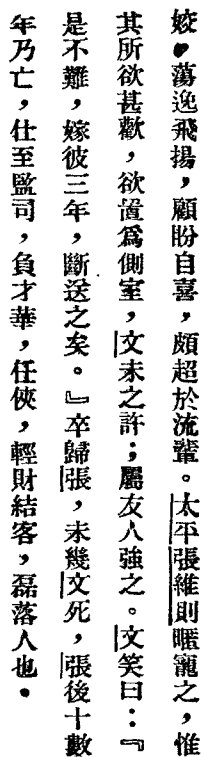 姣，蕩逸飛揚，顧盼自喜，頗超於流輩。太平張維則暱寵之，惟
其所欲甚歡，欲置爲側室，文未之許；屬友人強之。文笑曰：『
是不難，嫁彼三年，斷送之矣。』卒歸張，未幾文死，張後十數
年乃亡，仕至監司，負才華，任俠，輕財結客，磊落人也。